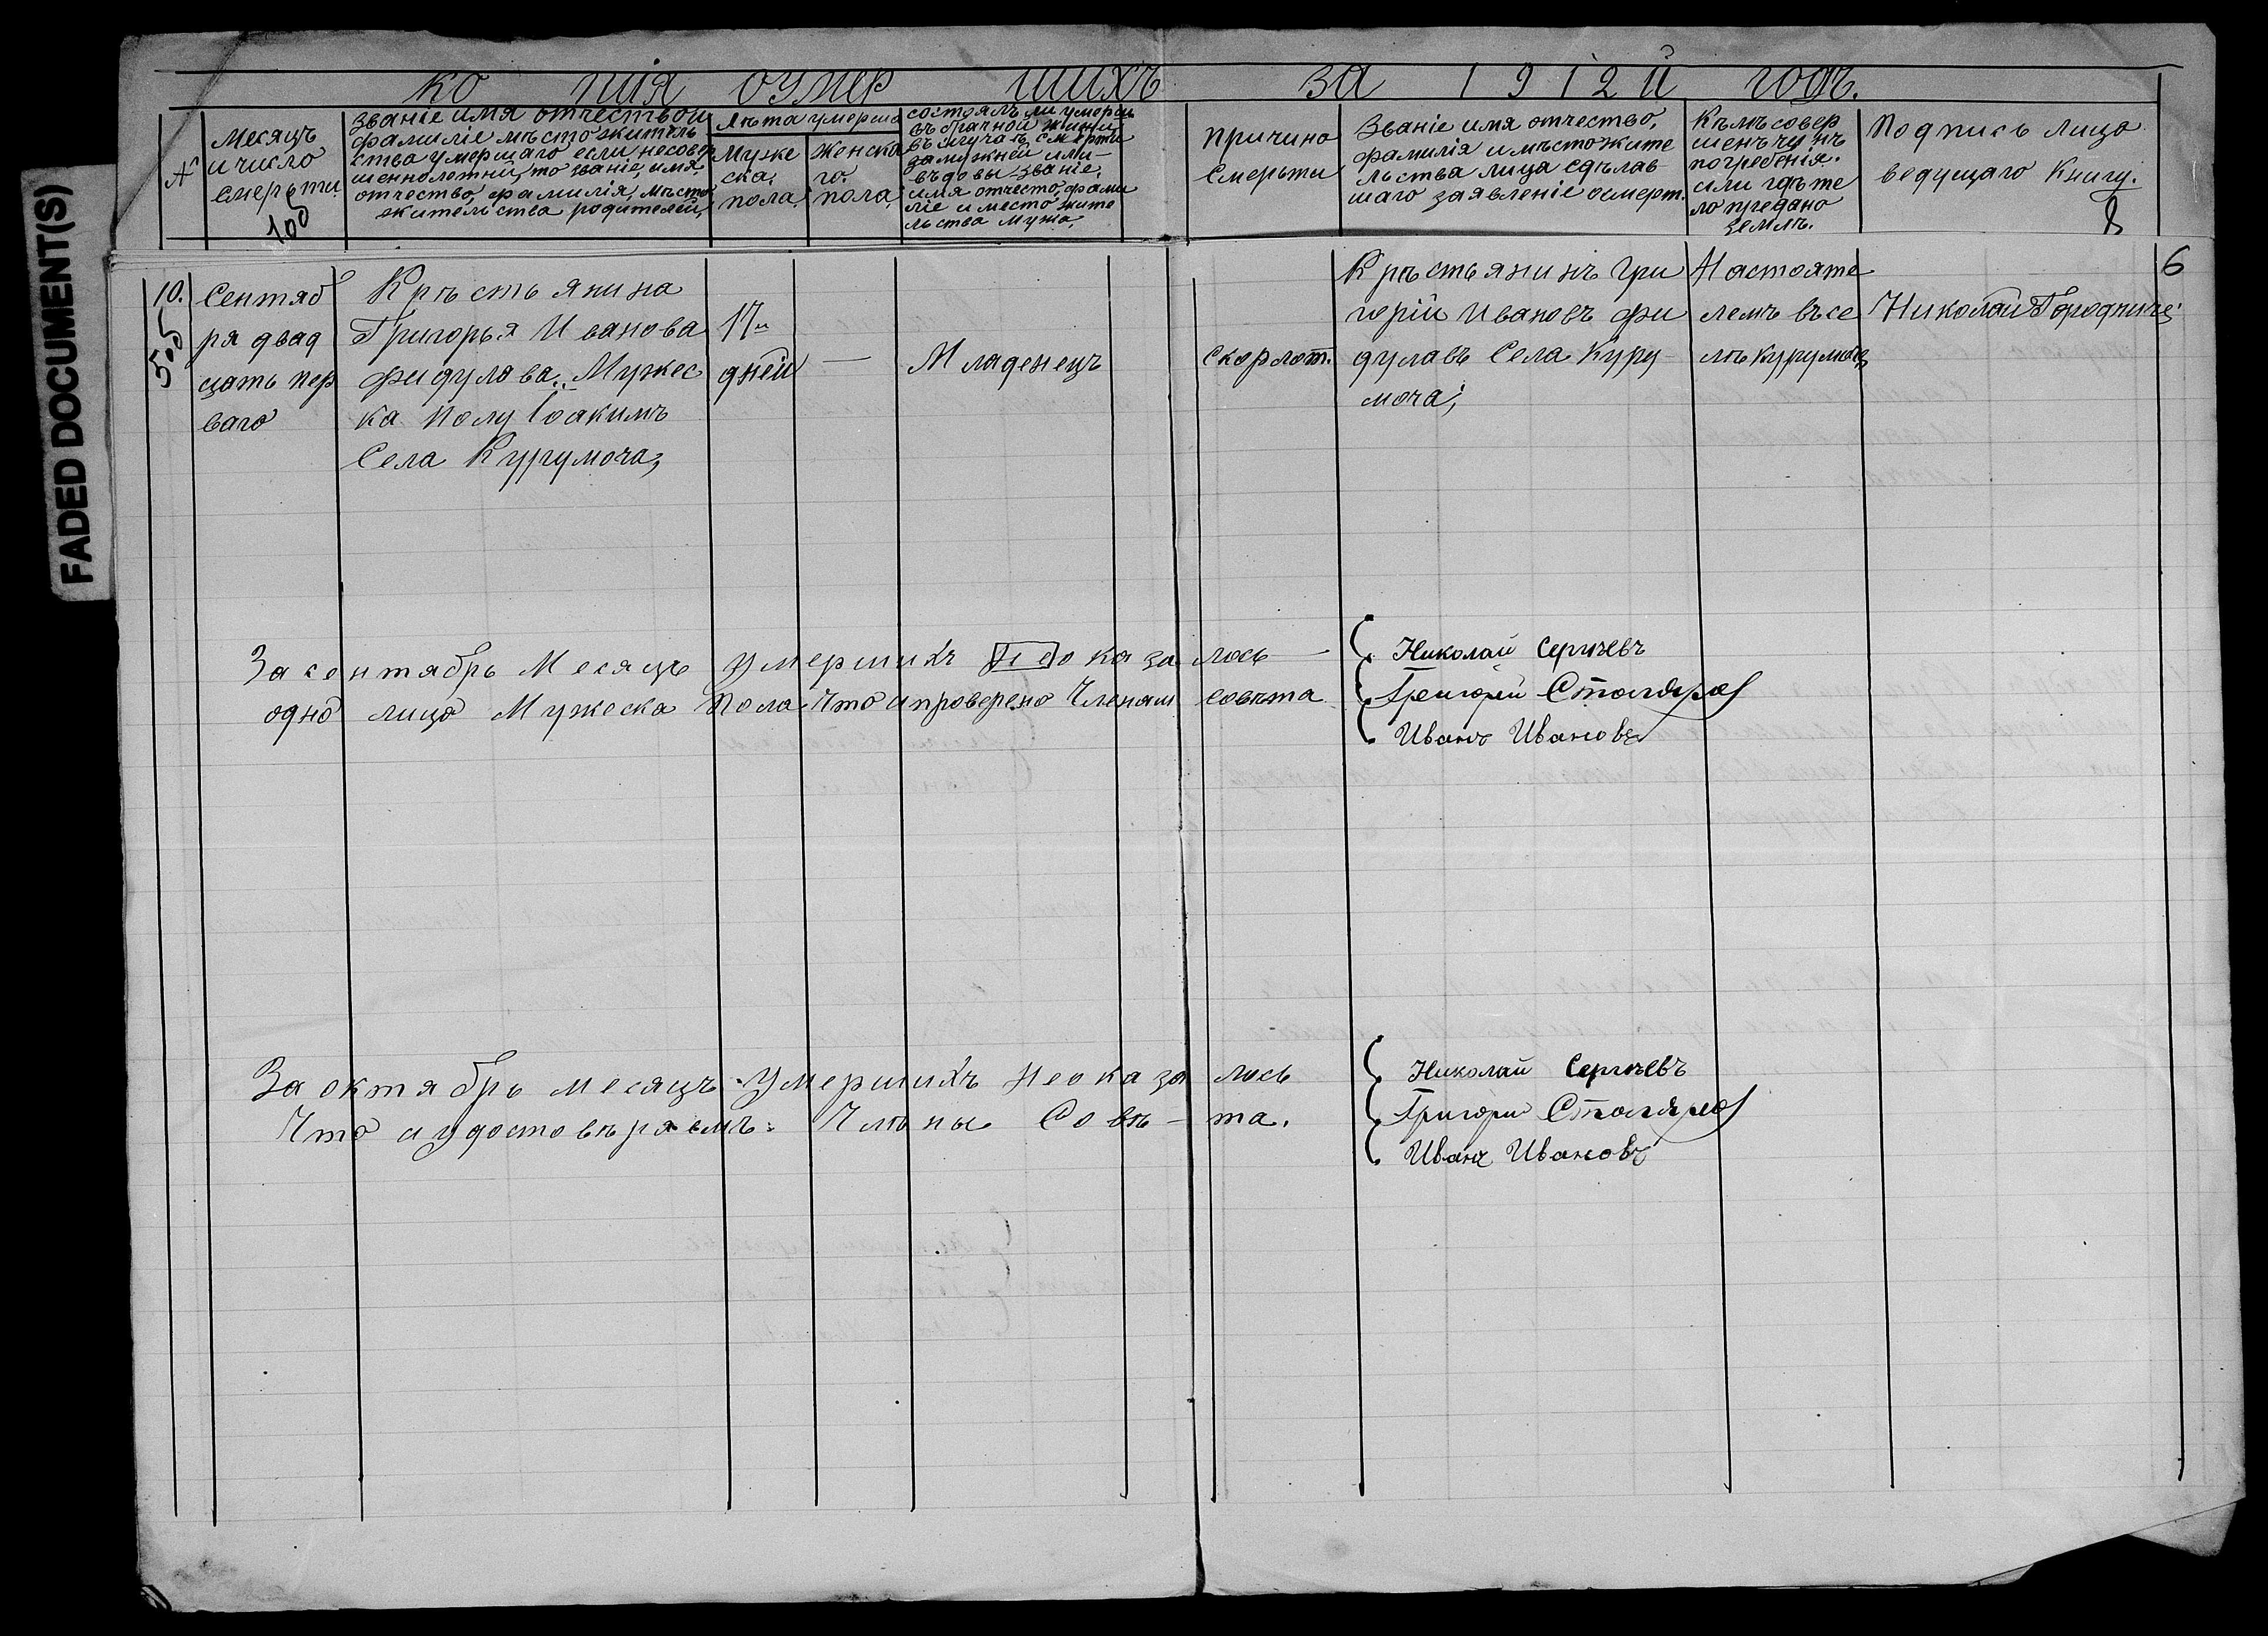 FADED DOCUMENT(S)
ко пія оумер шихъ за 1912 й годъ.
№
Месяцъ
и число
смерьти
Званіе имя отчество и
фамиліе мѣсто житель
ства умершаго если несовер
шеннолетнй, то званіе, имя,
отчество, фамилія, мѣсто
жительства родителей,
Лѣта умерша
Муже
ска,
пола,
Женска
го.
пола,
состоялъ ли умерш
въ брачной жизни
въ случаѣ смерти
замужней или
въдовы званіе,
имя отчесто, фами
ліе и место жите
льства мужа,
причино
Смерьти
Званіе имя отчество,
фамилія и мѣсто жите
льства лица сдѣлав
шаго заявленіе осмерт.
Кѣмъ совер
шенъ чинъ
погребенія.
или гдѣ те
ло предано
землѣ.
Подпись лица
ведущаго Книгу.
10.
Сентяб
ря двад
цать пер
ваго
Крѣстьянина
Григорья Иванова
Фидулова.. Мужес
ка полу Іоакимъ
Села Курумоча,
17и
дней
—
Младенецъ
скорлот.
Крѣстьянинъ Гри
горій Ивановъ Фи
дулавъ Села Куру
моча,
Настояте
лемъ въсе
лѣ Курумоч
6
За сентябрь Месяцъ умершихъ оказалось —
одно лицо Мужеска Пола Что и проверено Членам совѣта
Николай Сергѣевъ
Григорей Столяров
Иванъ Ивановъ
За октябрь месяцъ умершихъ не оказа лось
Что и удостовѣряемъ: Члѣны Совѣ-та.
Николай Сергѣевъ
Григори Столяров
Иванъ Ивановъ